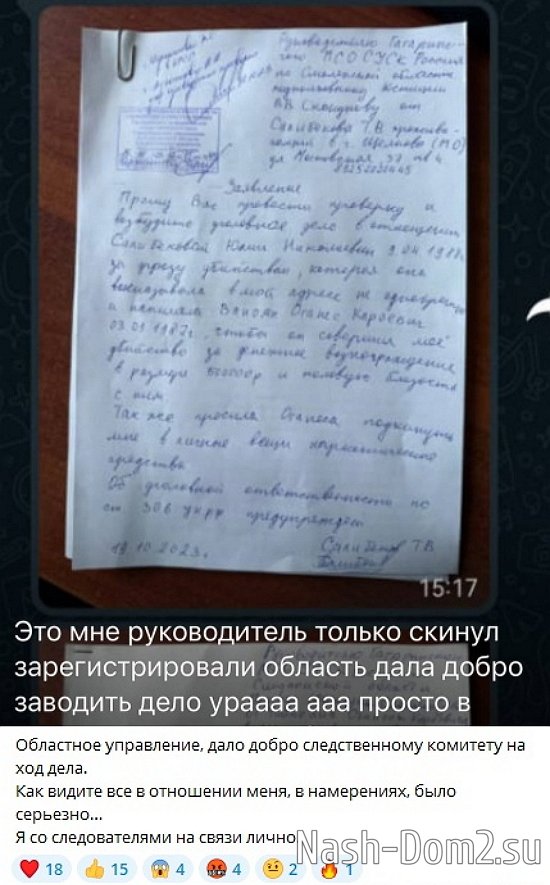 Руководителю Гагаринс-
по Смоленской области
подполковнику юстиции
Салибекова Т.В прожива-
Заявление
Прошу Вас провести проверку и
возбудить уголовное дело в отношении
Салибековой Юлии Николаевны
за угрозу убийством, которая она
высказывала в мой адрес не однократно
03.01.1987г, чтобы он совершил моё
убийство за денежное вознаграждение
в размере 500000р и половую близость
с ним
Так же просила Оганеса подкинуть
мне в личные вещи наркотические
средства
Об уголовной ответственности по
ст 306 УК РФ предупрежден
19.10.2023г Салибеков Т В
15:17
Это мне руководитель только скинул
зарегистрировали область дала добро
заводить дело ураааа ааа просто в
Областное управление, дало добро следственному комитету на
ход дела.
Как видите все в отношении меня, в намерениях, было
серьезно...
Я со следователями на связи лично
Nash-Dom2.su
18 15 4 4 2 1